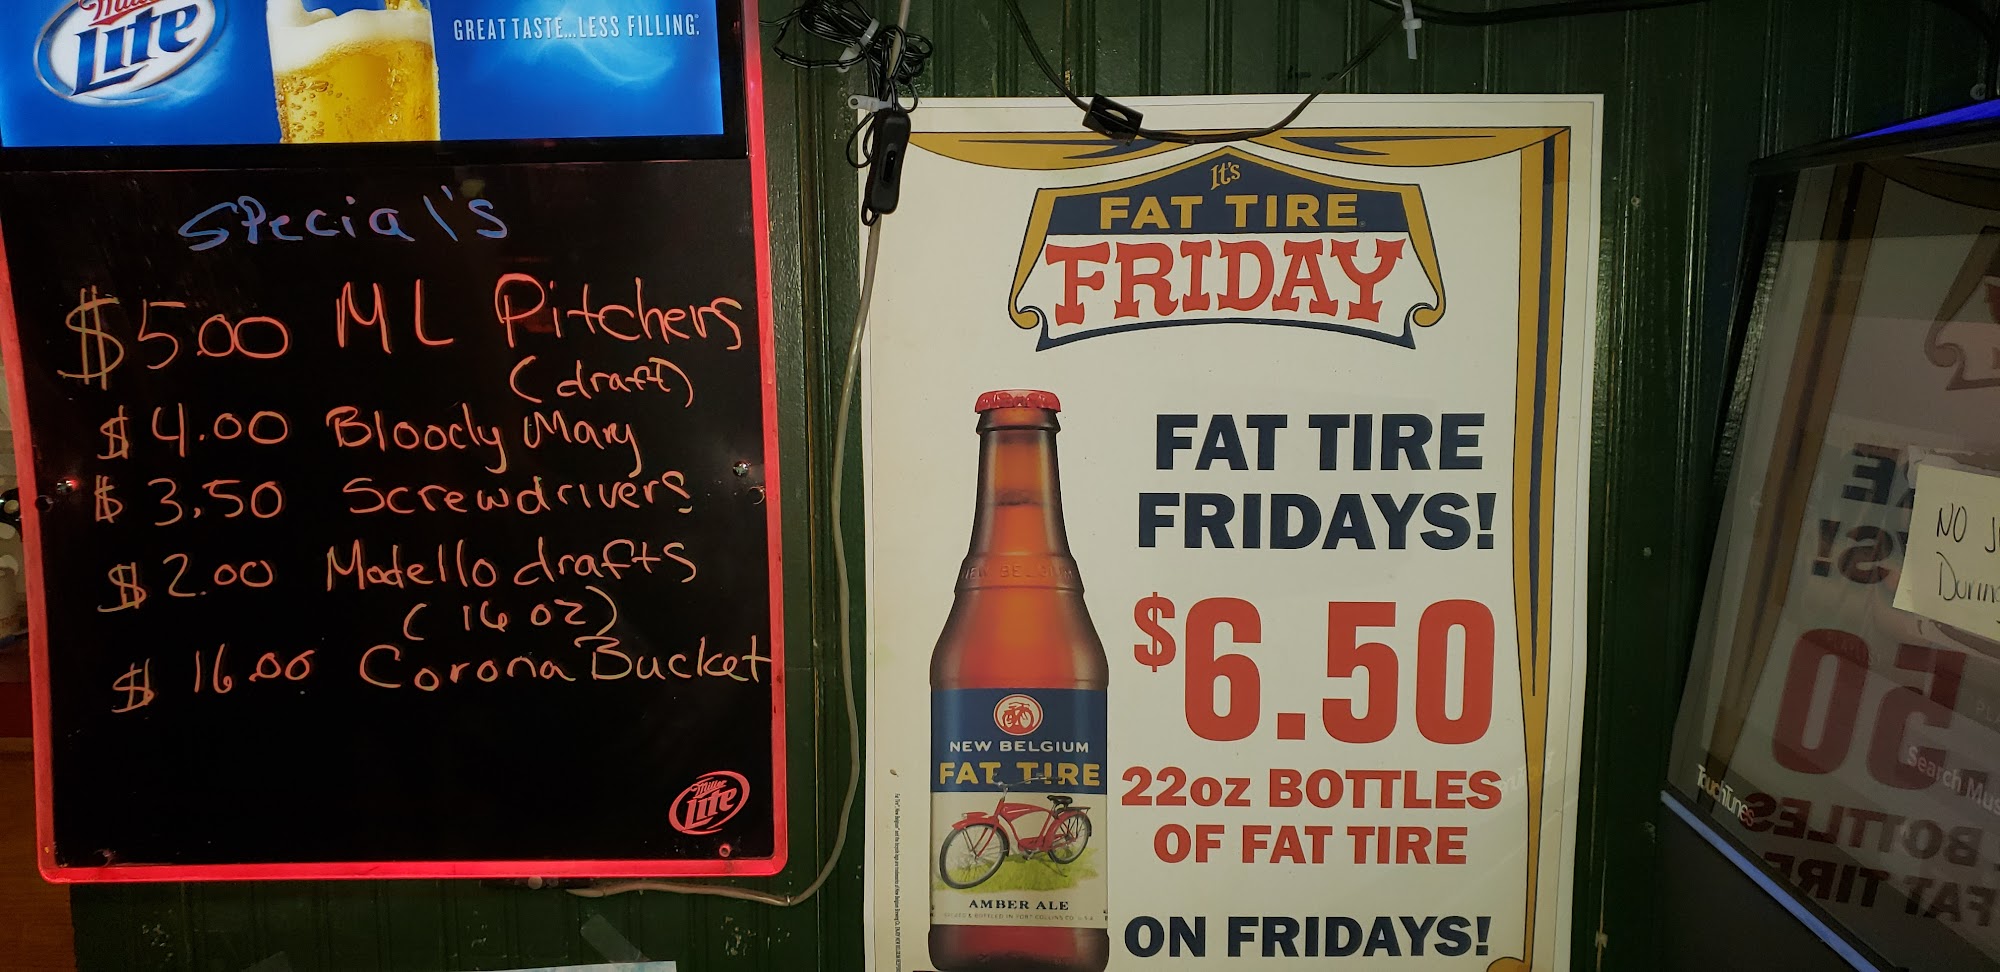 Miller
Lite
GREAT TASTE...LESS FILLING.
Special's
$5.00 ML Pitchers
(draft)
$4.00 Bloody Mary
$3.50 Screwdrivers
$2.00 Modello drafts
(16 oz)
$16.00 Corona Bucket
Miller
Lite
It's
FAT TIRE
FRIDAY
FAT TIRE
FRIDAYS!
$6.50
22oz BOTTLES
OF FAT TIRE
ON FRIDAYS!
NEW BELGIUM
NEW BELGIUM
FAT TIRE
AMBER ALE
NO
During
TouchTunes
Search